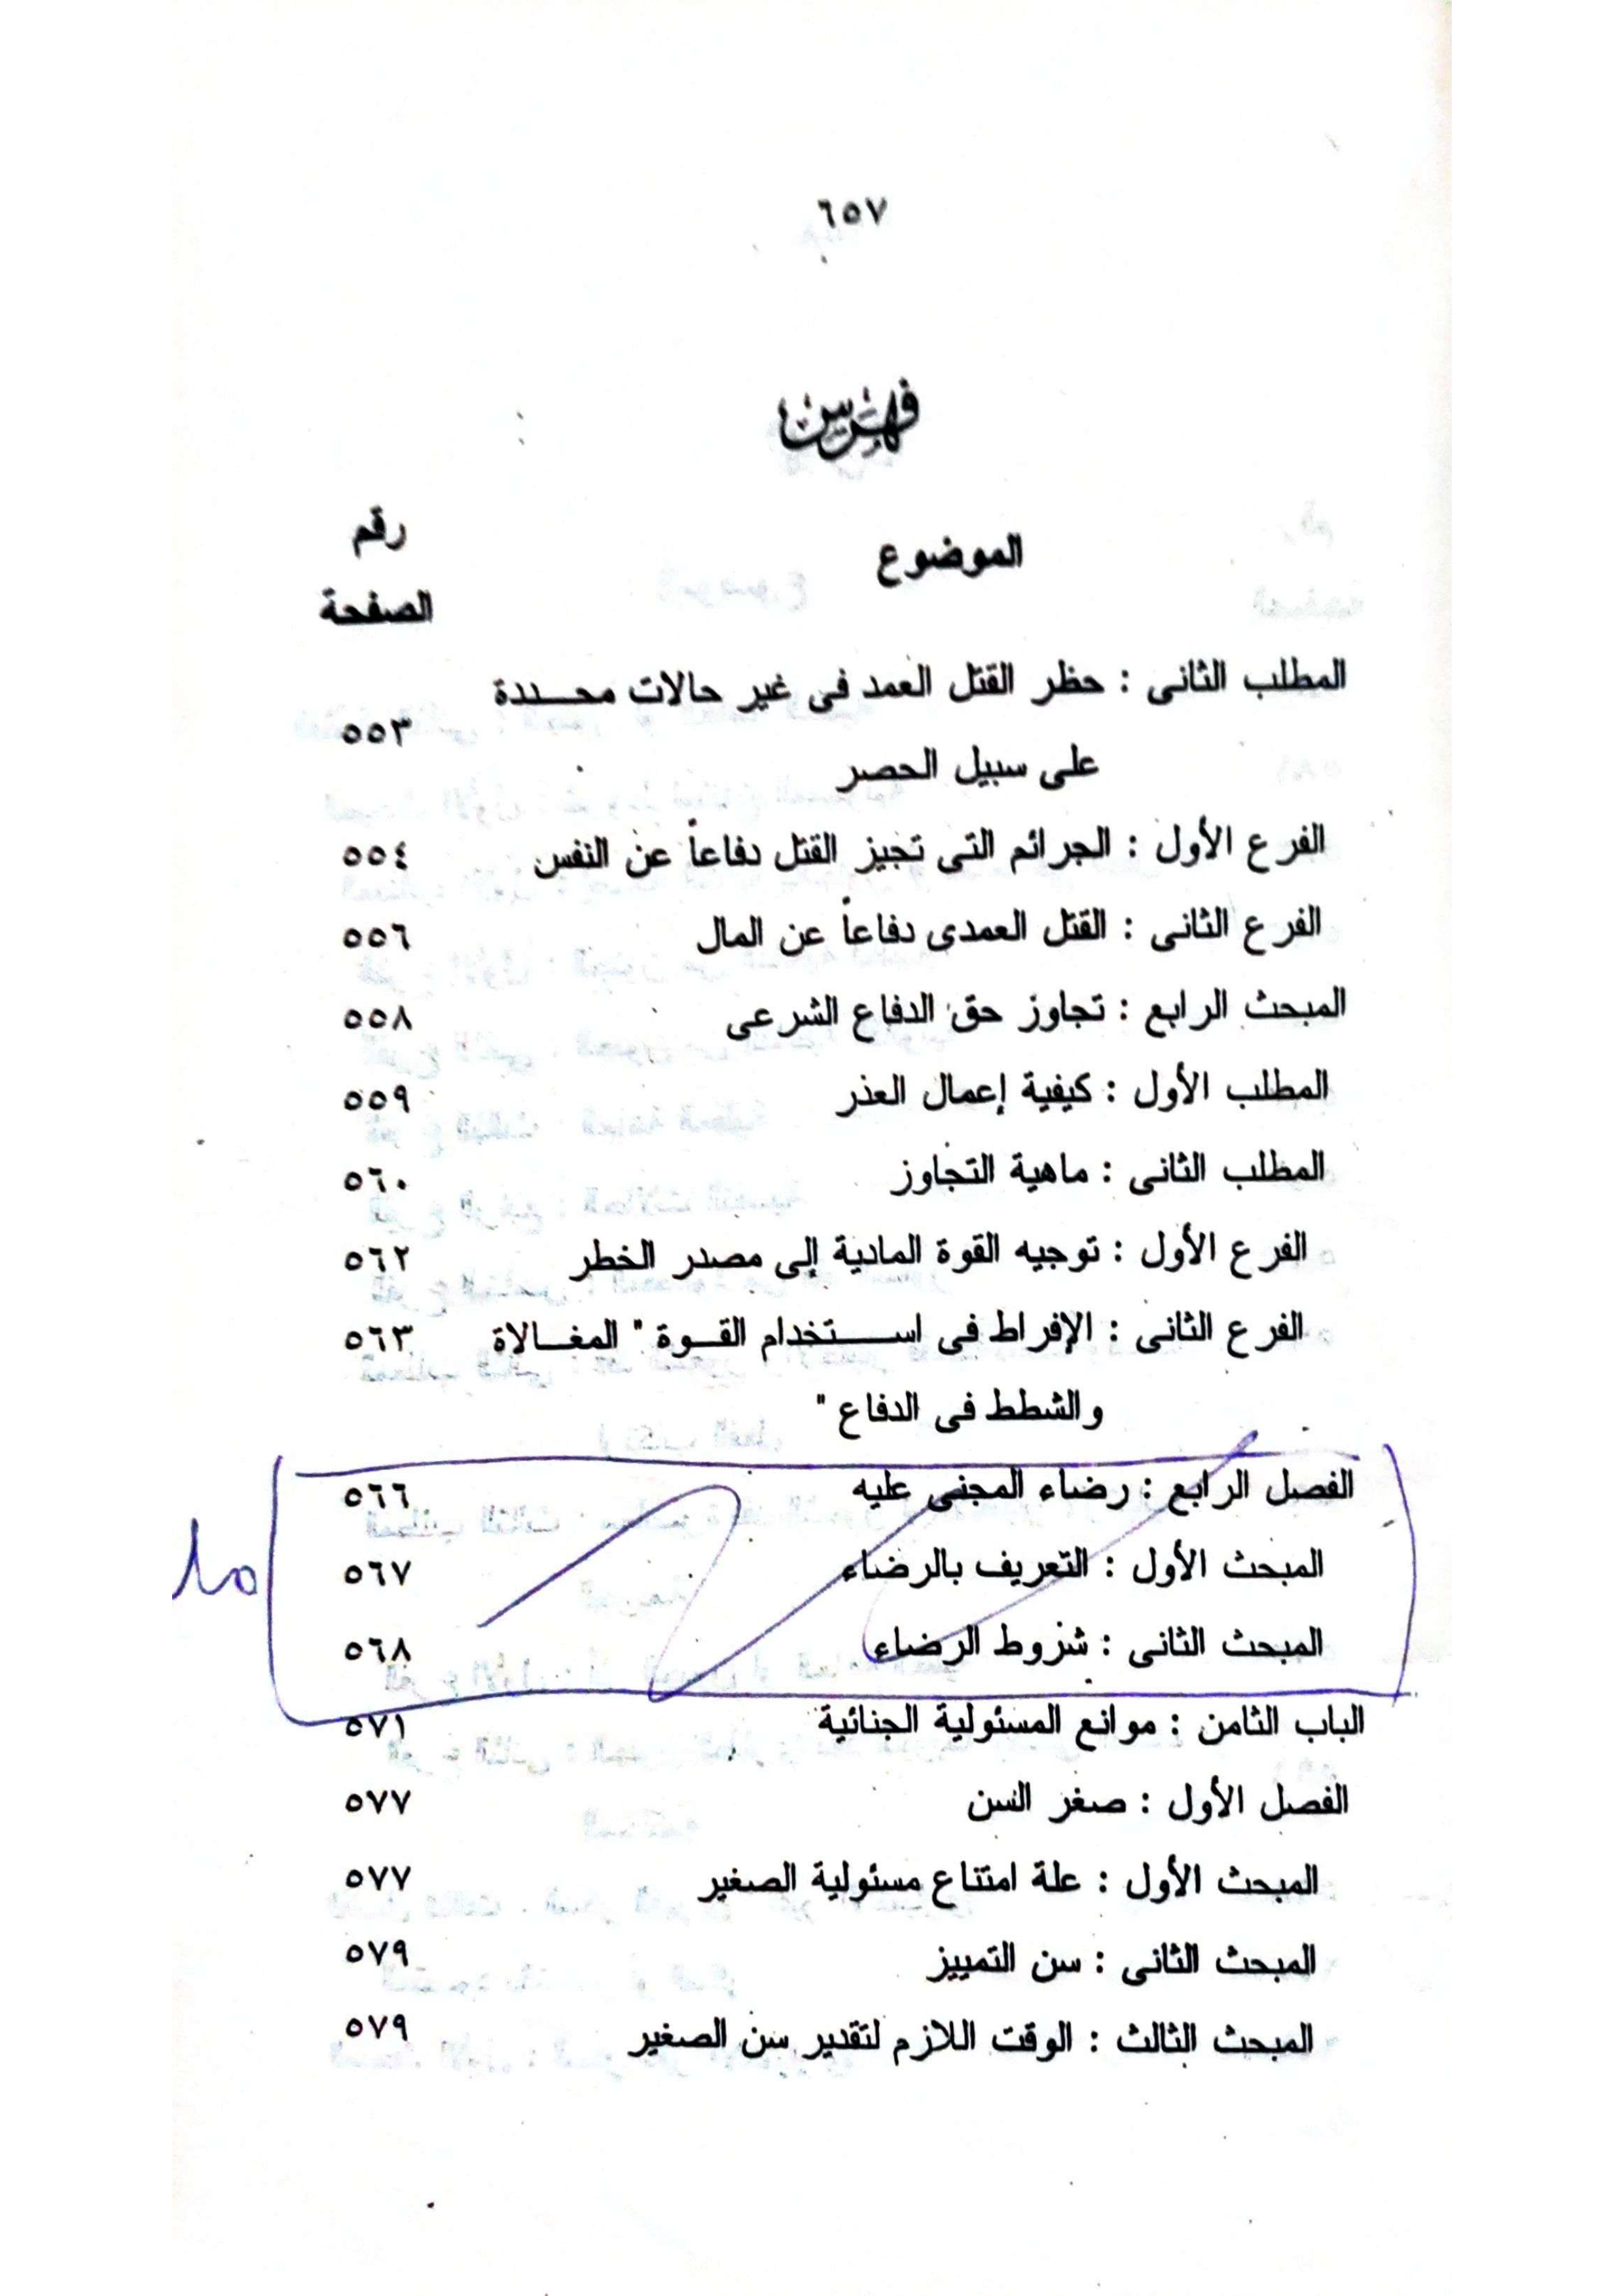 ٦٥٧
فهرس
الموضوع
رقم
الصفحة
المطلب الثانى : حظر القتل العمد فى غير حالات محددة
٥٥٣
على سبيل الحصر
الفرع الأول : الجرائم التى تجيز القتل دفاعاً عن النفس ٥٥٤
الفرع الثانى : القتل العمدى دفاعاً عن المال ٥٥٦
المبحث الرابع : تجاوز حق الدفاع الشرعى ٥٥٨
المطلب الأول : كيفية إعمال العذر ٥٥٩
المطلب الثانى : ماهية التجاوز ٥٦٠
الفرع الأول : توجيه القوة المادية إلى مصدر الخطر ٥٦٢
الفرع الثانى : الإفراط فى استخدام القوة " المغالاة ٥٦٣
والشطط فى الدفاع "
الفصل الرابع : رضاء المجنى عليه ٥٦٦
المبحث الأول : التعريف بالرضاء ٥٦٧
المبحث الثانى : شروط الرضاء ٥٦٨
الباب الثامن : موانع المسئولية الجنائية ٥٧١
الفصل الأول : صغر السن ٥٧٧
المبحث الأول : علة امتناع مسئولية الصغير ٥٧٧
المبحث الثانى : سن التمييز ٥٧٩
المبحث الثالث : الوقت اللازم لتقدير سن الصغير ٥٧٩